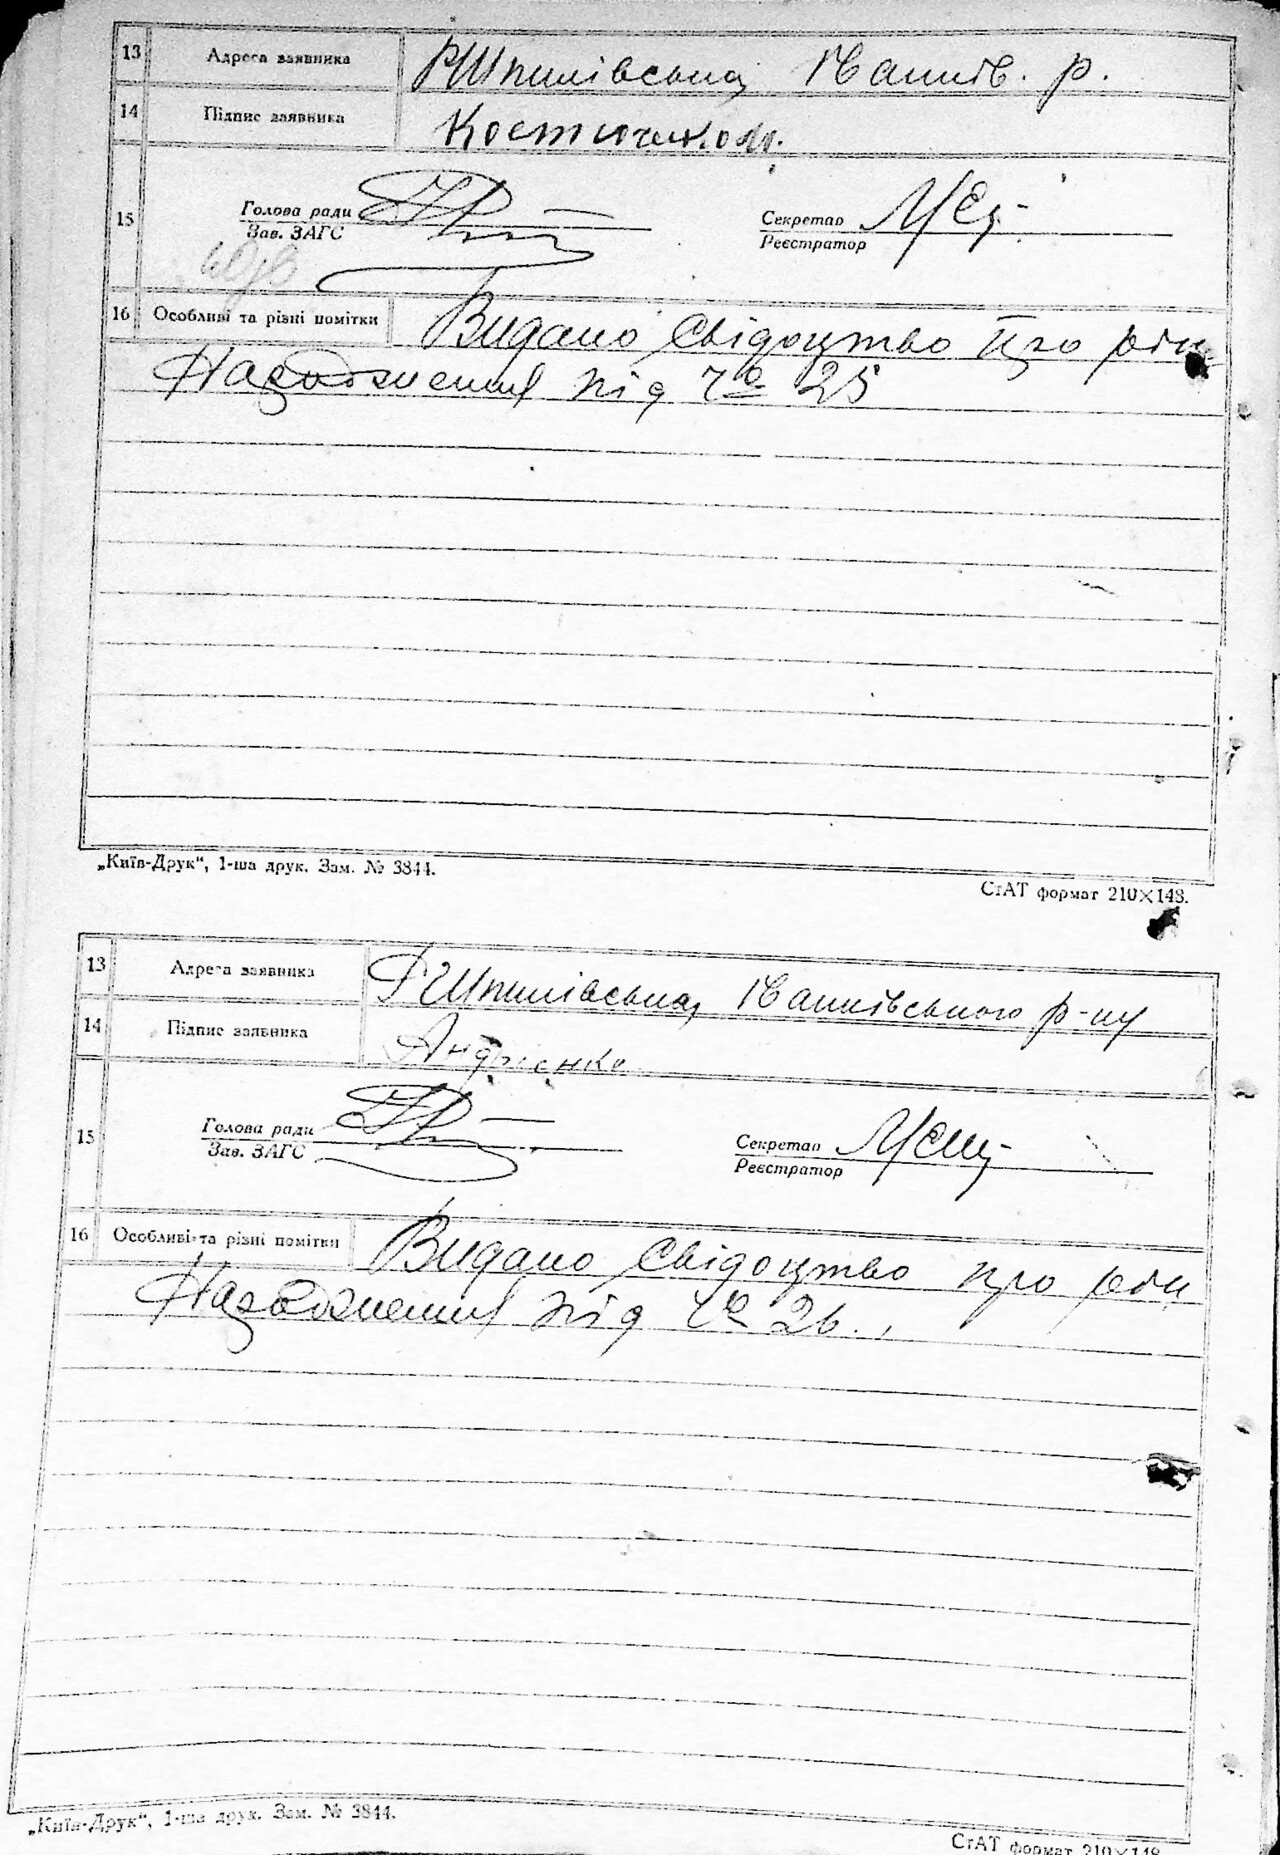 13 Адреса заявника РШпилівська, Іванків. р.
14 Підпис заявника Костюченко
15 Голова ради Секретар
Зав. ЗАГС Реєстратор
16 Особливі та різні помітки Видано свідоцтво про
народження під № 25
„Київ-Друк“, 1-ша друк. Зам. № 3844.
СтАТ формат 210×148.
13 Адреса заявника РШпилівська, Іванківського р-ну
14 Підпис заявника Андрієнко
15 Голова ради Секретар
Зав. ЗАГС Реєстратор
16 Особливі та різні помітки Видано свідоцтво про
народження під № 26.
„Київ-Друк“, 1-ша друк. Зам. № 3844.
СтАТ формат 210×148